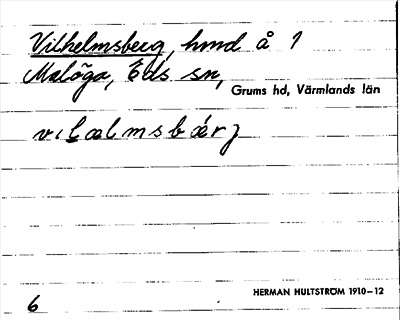 Vilhelmsberg, hmd å 1
Malöga, Eds sn,
Grums hd, Värmlands län
vılælmsbærj
HERMAN HULTSTRÖM 1910–12
6